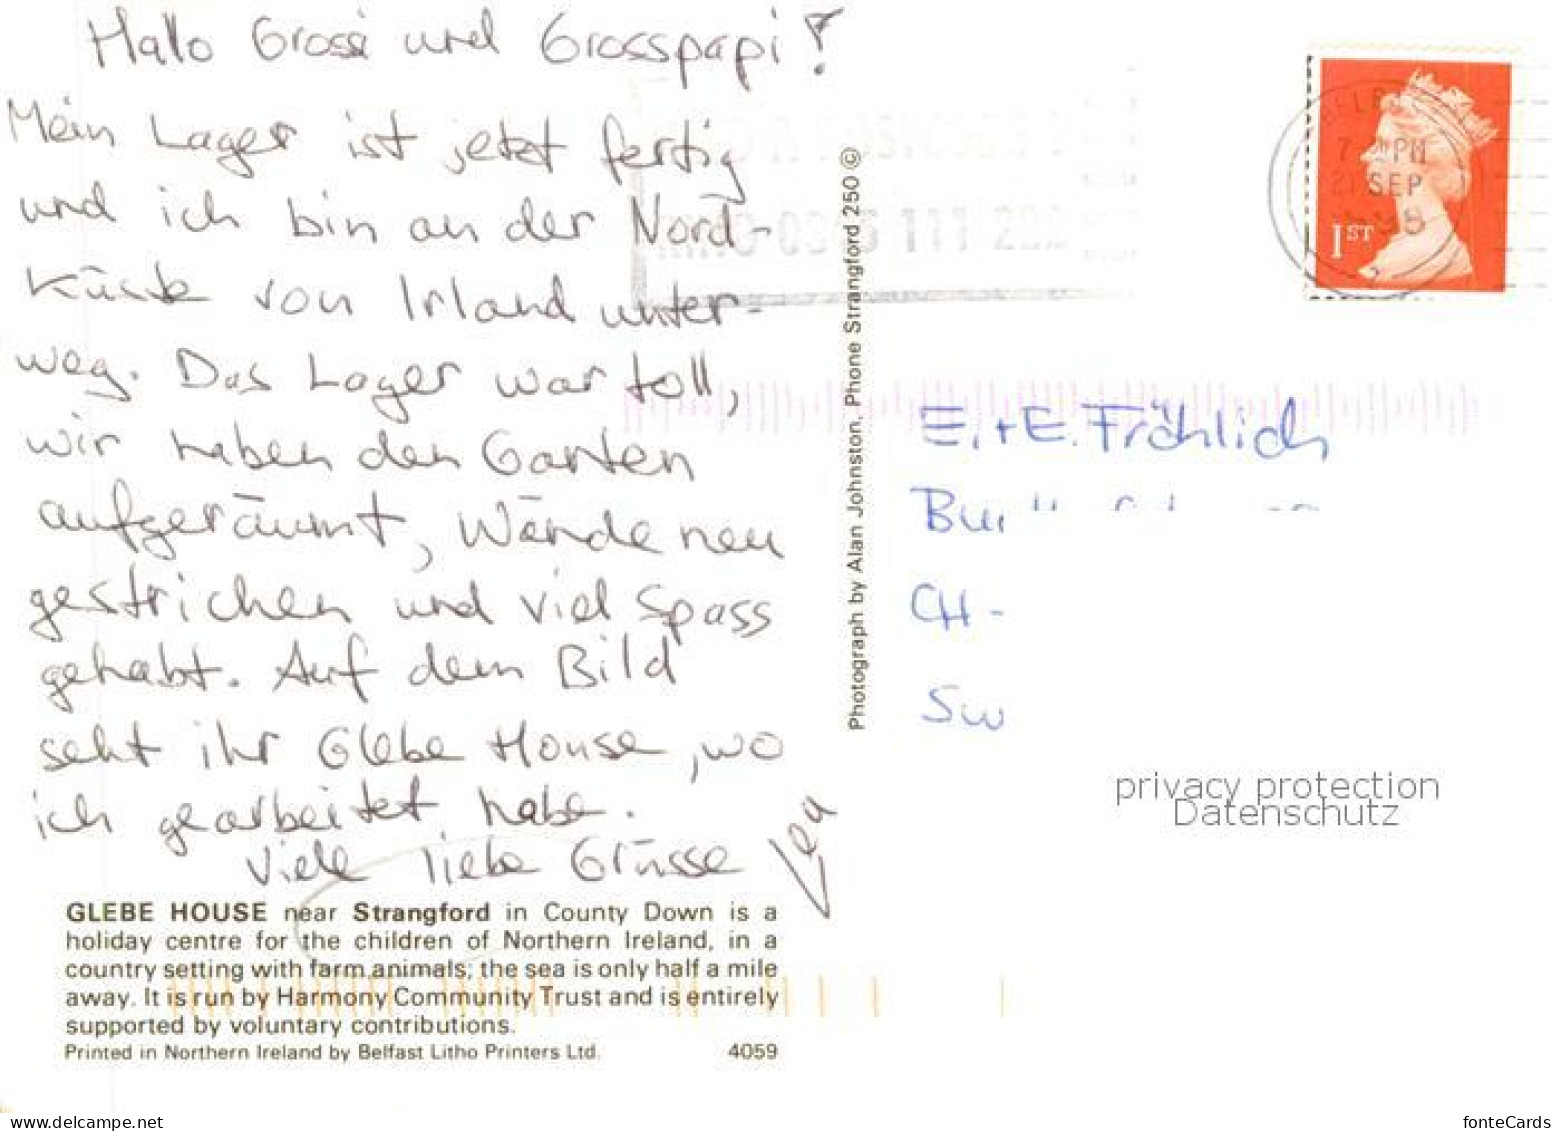 Hallo Grosi und Grosspapi!
Mein Lager ist jetzt fertig
und ich bin an der Nord-
Küste von Irland unter-
weg. Das Lager war toll,
wir haben den Garten
aufgeräumt, Wände neu
gestrichen und viel Spass
gehabt. Auf dem Bild
seht ihr Glebe House, wo
ich gearbeitet habe.
Viele liebe Grüsse
Lea
GLEBE HOUSE near Strangford in County Down is a
holiday centre for the children of Northern Ireland, in a
country setting with farm animals; the sea is only half a mile
away. It is run by Harmony Community Trust and is entirely
supported by voluntary contributions.
Printed in Northern Ireland by Belfast Litho Printers Ltd. 4059
Photograph by Alan Johnston, Phone Strangford 250 ©
PM
SEP
1ST
111 222
E.+E. Fröhlich
CH-
privacy protection
Datenschutz
www.delcampe.net
fonteCards